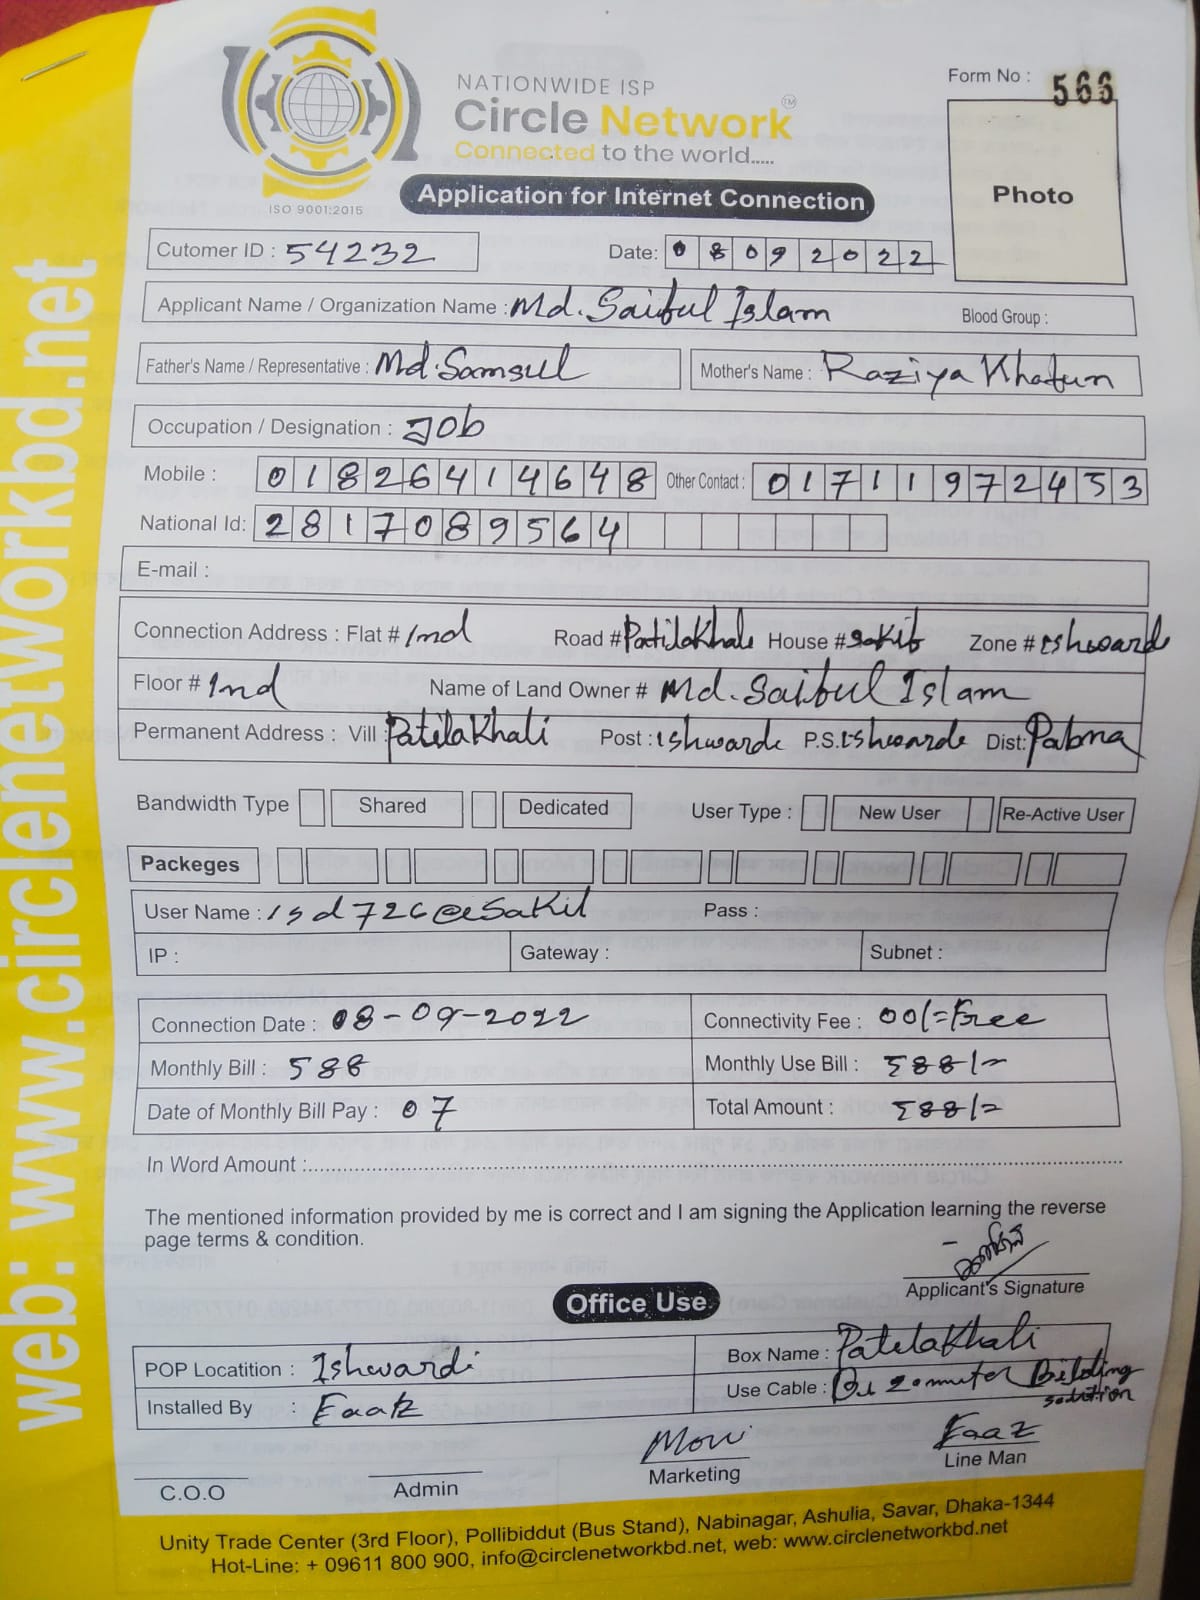 NATIONWIDE ISP
Circle Network TM
Connected to the world.....
ISO 9001:2015
Form No : 566
Photo
Application for Internet Connection
Cutomer ID : 54232 Date: 08092022
Applicant Name / Organization Name : Md. Saiful Islam Blood Group :
Father's Name / Representative : Md. Samsul Mother's Name : Raziya Khatun
Occupation / Designation : Job
Mobile : 01826414648 Other Contact : 01711972453
National Id: 2817089564
E-mail :
Connection Address : Flat # 1nd Road # Patilakhale House # Sakib Zone # Eshwarde
Floor # 1nd Name of Land Owner # Md. Saiful Islam
Permanent Address : Vill : Patilakhali Post : ishwarde P.S. Eshwarde Dist: Pabna
Bandwidth Type Shared Dedicated User Type : New User Re-Active User
Packeges
User Name : isd726@eSakil Pass :
IP : Gateway : Subnet :
Connection Date : 08-09-2022 Connectivity Fee : 00/= Free
Monthly Bill : 588 Monthly Use Bill : 588/=
Date of Monthly Bill Pay : 07 Total Amount : 588/=
In Word Amount :
The mentioned information provided by me is correct and I am signing the Application learning the reverse
page terms & condition.
Applicant's Signature
Office Use
POP Locatition : Ishwardi Box Name : Patelakhali
Installed By : Use Cable :
C.O.O Admin Marketing Faaz Line Man
Unity Trade Center (3rd Floor), Pollibiddut (Bus Stand), Nabinagar, Ashulia, Savar, Dhaka-1344
Hot-Line: + 09611 800 900, info@circlenetworkbd.net, web: www.circlenetworkbd.net
web: www.circlenetworkbd.net